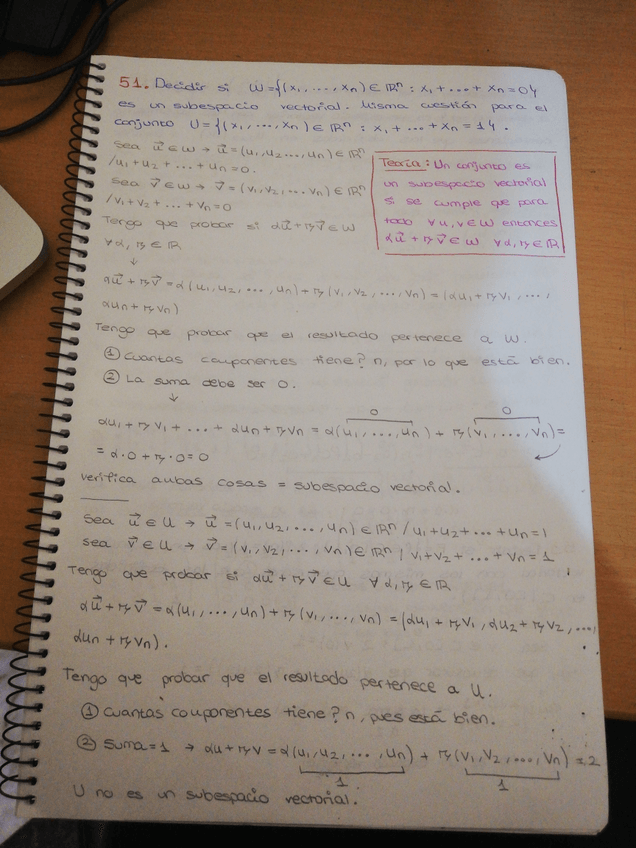 51. Decidir si W={(x₁, ..., xₙ) ∈ ℝⁿ : x₁ + ... + xₙ = 0}
es un subespacio vectorial. Misma cuestión para el
conjunto U={(x₁, ..., xₙ) ∈ ℝⁿ : x₁ + ... + xₙ = 1}.
Sea u⃗ ∈ W → u⃗ = (u₁, u₂ ..., uₙ) ∈ ℝⁿ
/u₁ + u₂ + ... + uₙ = 0.
Sea v⃗ ∈ W → v⃗ = (v₁, v₂ ..., vₙ) ∈ ℝⁿ
/v₁ + v₂ + ... + vₙ = 0
Tengo que probar si αu⃗ + βv⃗ ∈ W
∀ α, β ∈ ℝ
↓
Teoría: Un conjunto es
un subespacio vectorial
si se cumple que para
todo ∀ u, v ∈ W entonces
αu⃗ + βv⃗ ∈ W ∀ α, β ∈ ℝ
αu⃗ + βv⃗ = α(u₁, u₂, ..., uₙ) + β(v₁, v₂, ..., vₙ) = (αu₁ + βv₁, ...,
αuₙ + βvₙ)
Tengo que probar que el resultado pertenece a W.
① Cuantas componentes tiene? n, por lo que está bien.
② La suma debe ser 0.
↓
0 0
αu₁ + βv₁ + ... + αuₙ + βvₙ = α(u₁, ..., uₙ) + β(v₁, ..., vₙ) =
= α·0 + β·0 = 0
verifica ambas cosas = subespacio vectorial.
Sea u⃗ ∈ U → u⃗ = (u₁, u₂, ..., uₙ) ∈ ℝⁿ / u₁ + u₂ + ... + uₙ = 1
sea v⃗ ∈ U → v⃗ = (v₁, v₂, ..., vₙ) ∈ ℝⁿ / v₁ + v₂ + ... + vₙ = 1
Tengo que probar si αu⃗ + βv⃗ ∈ U ∀ α, β ∈ ℝ
αu⃗ + βv⃗ = α(u₁, ..., uₙ) + β(v₁, ..., vₙ) = (αu₁ + βv₁, αu₂ + βv₂, ...,
αuₙ + βvₙ).
Tengo que probar que el resultado pertenece a U.
① Cuantas componentes tiene? n, pues está bien.
② Suma = 1 → αu + βv = α(u₁, u₂, ..., uₙ) + β(v₁, v₂, ..., vₙ) = 2
1 1
U no es un subespacio vectorial.